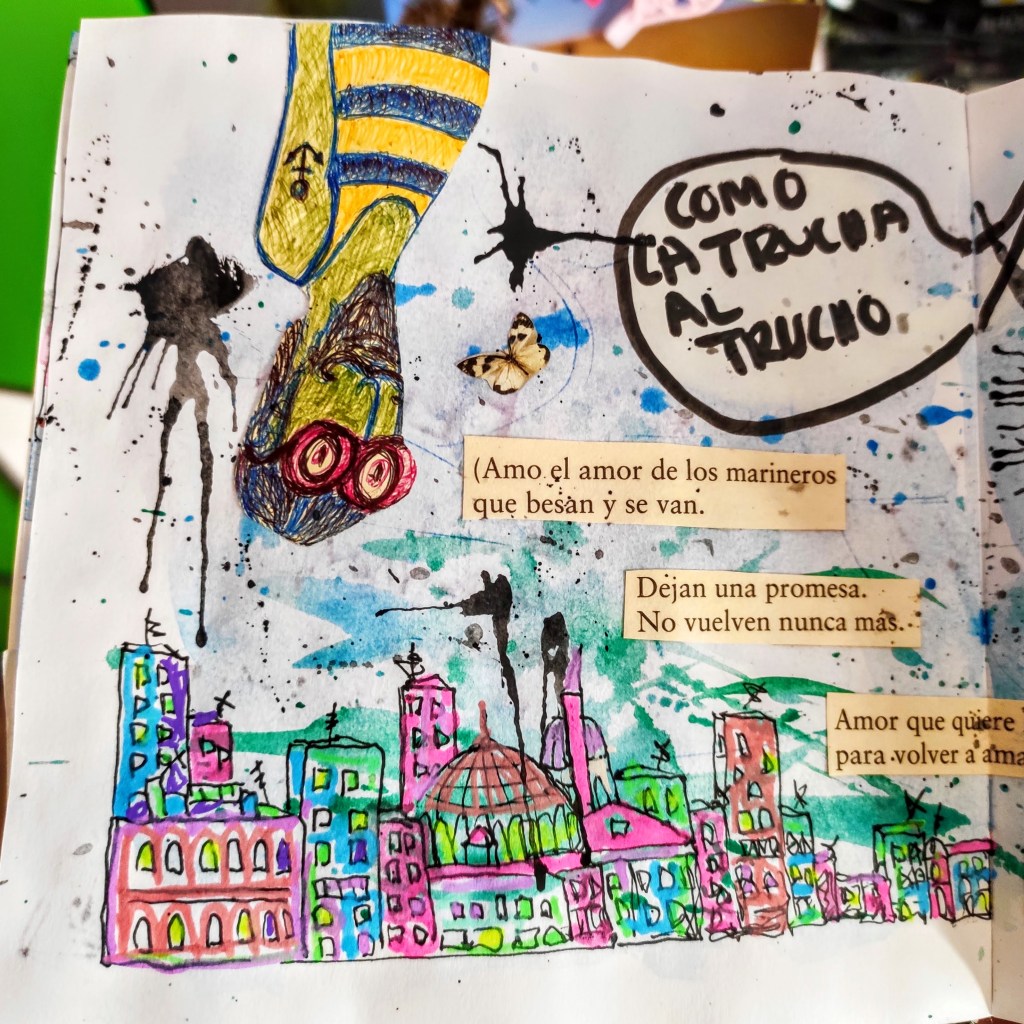 COMO
LA TRUCHA
AL
TRUCHO
(Amo el amor de los marineros
que besan y se van.
Dejan una promesa.
No vuelven nunca más.
Amor que quiere
para volver a ama